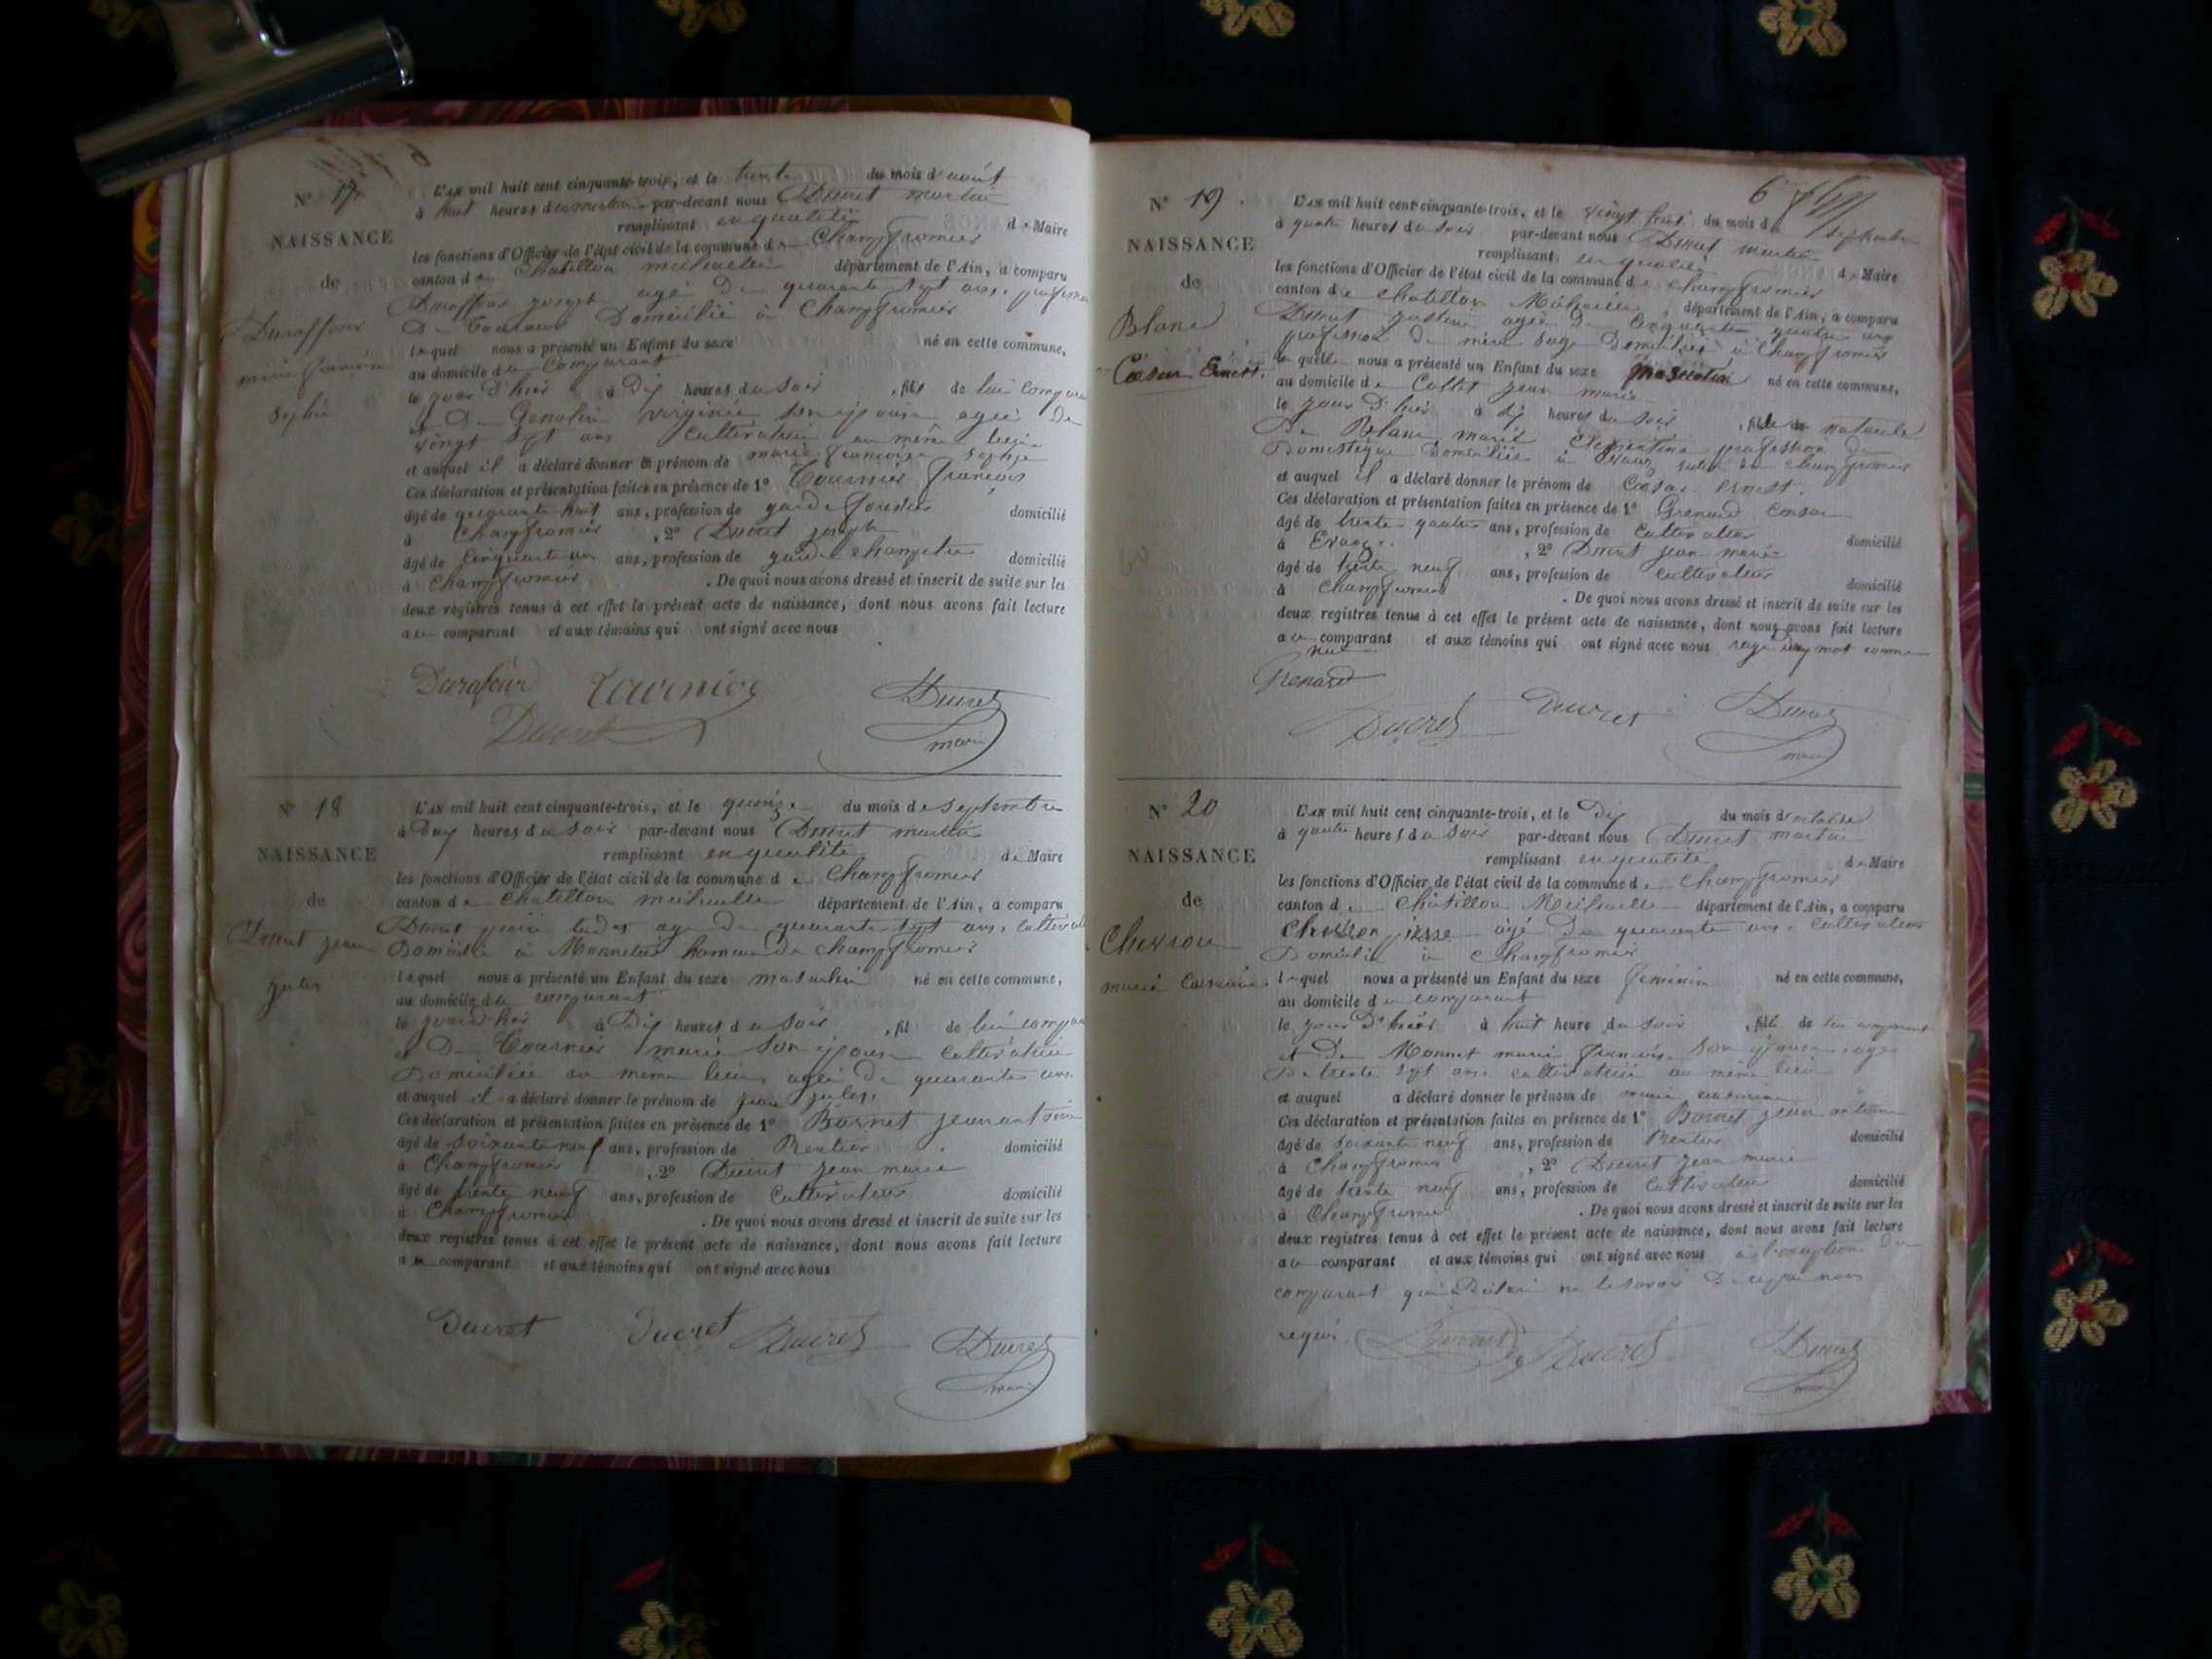 N° 17
NAISSANCE
de
Duraffour
marie françoise
Sophie
L'AN mil huit cent cinquante-trois, et le trente du mois d'août
à huit heures du matin par-devant nous Ducret martin
remplissant en qualité de Maire
les fonctions d'Officier de l'état civil de la commune de Champfromier
canton de Chatillon michaille département de l'Ain, a comparu
Duraffour joseph agé de quarante sept ans, profession
De Domicilié à Champfromier
lequel nous a présenté un Enfant du sexe né en cette commune,
au domicile du Comparant
le jour D'hier à Dix heures du Soir , fil de lui comparant
et De Genolin Virginie Son epouse agée De
vingt sept ans Cultivatrice au même lieu
et auquel il a déclaré donner le prénom de marie françoise Sophie
Ces déclaration et présentation faites en présence de 1° Tournier françois
âgé de quarante huit ans, profession de garde forestier domicilié
à Champfromier , 2° Ducret joseph
âgé de Cinquante un ans, profession de garde champetre domicilié
à Champfromier . De quoi nous avons dressé et inscrit de suite sur les
deux registres tenus à cet effet le présent acte de naissance, dont nous avons fait lecture
au comparant et aux témoins qui ont signé avec nous
Durafour Tournier
Ducret
Ducret
maire
N° 18
NAISSANCE
de
Ducret jean
jules
L'AN mil huit cent cinquante-trois, et le quinze du mois de Septembre
à Deux heures du Soir par-devant nous Ducret martin
remplissant en qualité de Maire
les fonctions d'Officier de l'état civil de la commune de Champfromier
canton de Chatillon michaille département de l'Ain, a comparu
Ducret agé De quarante sept ans, Cultivateur
Domicilié à Monnetier hameau de Champfromier
lequel nous a présenté un Enfant du sexe masculin né en cette commune,
au domicile du comparant
le jour d'hier à Dix heures du Soir , fil de lui comparant
et De Tournier marie Son epouse Cultivatrice
Domiciliée au meme lieu, agée De quarante ans
et auquel il a déclaré donner le prénom de jean jules
Ces déclaration et présentation faites en présence de 1° Bornet jean antoine
âgé de Soixante neuf ans, profession de Rentier domicilié
à Champfromier , 2° Ducret jean marie
âgé de trente neuf ans, profession de Cultivateur domicilié
à Champfromier . De quoi nous avons dressé et inscrit de suite sur les
deux registres tenus à cet effet le présent acte de naissance, dont nous avons fait lecture
au comparant et aux témoins qui ont signé avec nous
Ducret Ducret Ducret Ducret
maire
6
N° 19
NAISSANCE
de
Blanc
Cæsar Ernest.
L'AN mil huit cent cinquante-trois, et le vingt huit du mois de Septembre
à quatre heures du Soir par-devant nous Ducret martin
remplissant en qualité de Maire
les fonctions d'Officier de l'état civil de la commune de champfromier
canton de Chatillon Michaille, département de l'Ain, a comparu
Ducret justine agée De Cinquante quatre ans
profession De mère Sage Domiciliée à Champfromier
laquelle nous a présenté un Enfant du sexe Masculin né en cette commune,
au domicile de Collet jean marie
le jour D'hier à dix heures du Soir , fils naturelle
De Blanc marie Clementine profession De
Domestique Domiciliée à Evuaz champfromier
et auquel il a déclaré donner le prénom de Cæsar ernest.
Ces déclaration et présentation faites en présence de 1° Grenard Cæsar
âgé de trente quatre ans, profession de Cultivateur domicilié
à Evuaz , 2° Ducret jean marie
âgé de trente neuf ans, profession de Cultivateur domicilié
à Champfromier . De quoi nous avons dressé et inscrit de suite sur les
deux registres tenus à cet effet le présent acte de naissance, dont nous avons fait lecture
a la comparant et aux témoins qui ont signé avec nous rayé un mot comme
nul
Grenard
Ducret Ducret Ducret
maire
N° 20
NAISSANCE
de
Chevron
marie
L'AN mil huit cent cinquante-trois, et le Dix du mois d'octobre
à quatre heures du Soir par-devant nous Ducret martin
remplissant en qualité de Maire
les fonctions d'Officier de l'état civil de la commune de Champfromier
canton de Châtillon Michaille département de l'Ain, a comparu
Chevron pierre âgé De quarante ans, Cultivateur
Domicilié à Champfromier
lequel nous a présenté un Enfant du sexe feminin né en cette commune,
au domicile du comparant
le jour D'hier à huit heure du Soir , fille de lui comparant
et De Monnet marie françoise Son epouse agée
De trente sept ans cultivatrice au même lieu
et auquel a déclaré donner le prénom de marie
Ces déclaration et présentation faites en présence de 1° Bornet jean antoine
âgé de Soixante neuf ans, profession de Rentier domicilié
à Champfromier , 2° Ducret jean marie
âgé de trente neuf ans, profession de Cultivateur domicilié
à Champfromier . De quoi nous avons dressé et inscrit de suite sur les
deux registres tenus à cet effet le présent acte de naissance, dont nous avons fait lecture
au comparant et aux témoins qui ont signé avec nous a l'exception du
comparant qui a Déclaré ne le savoir De ce par nous
requis. Bornet Ducret Ducret
maire